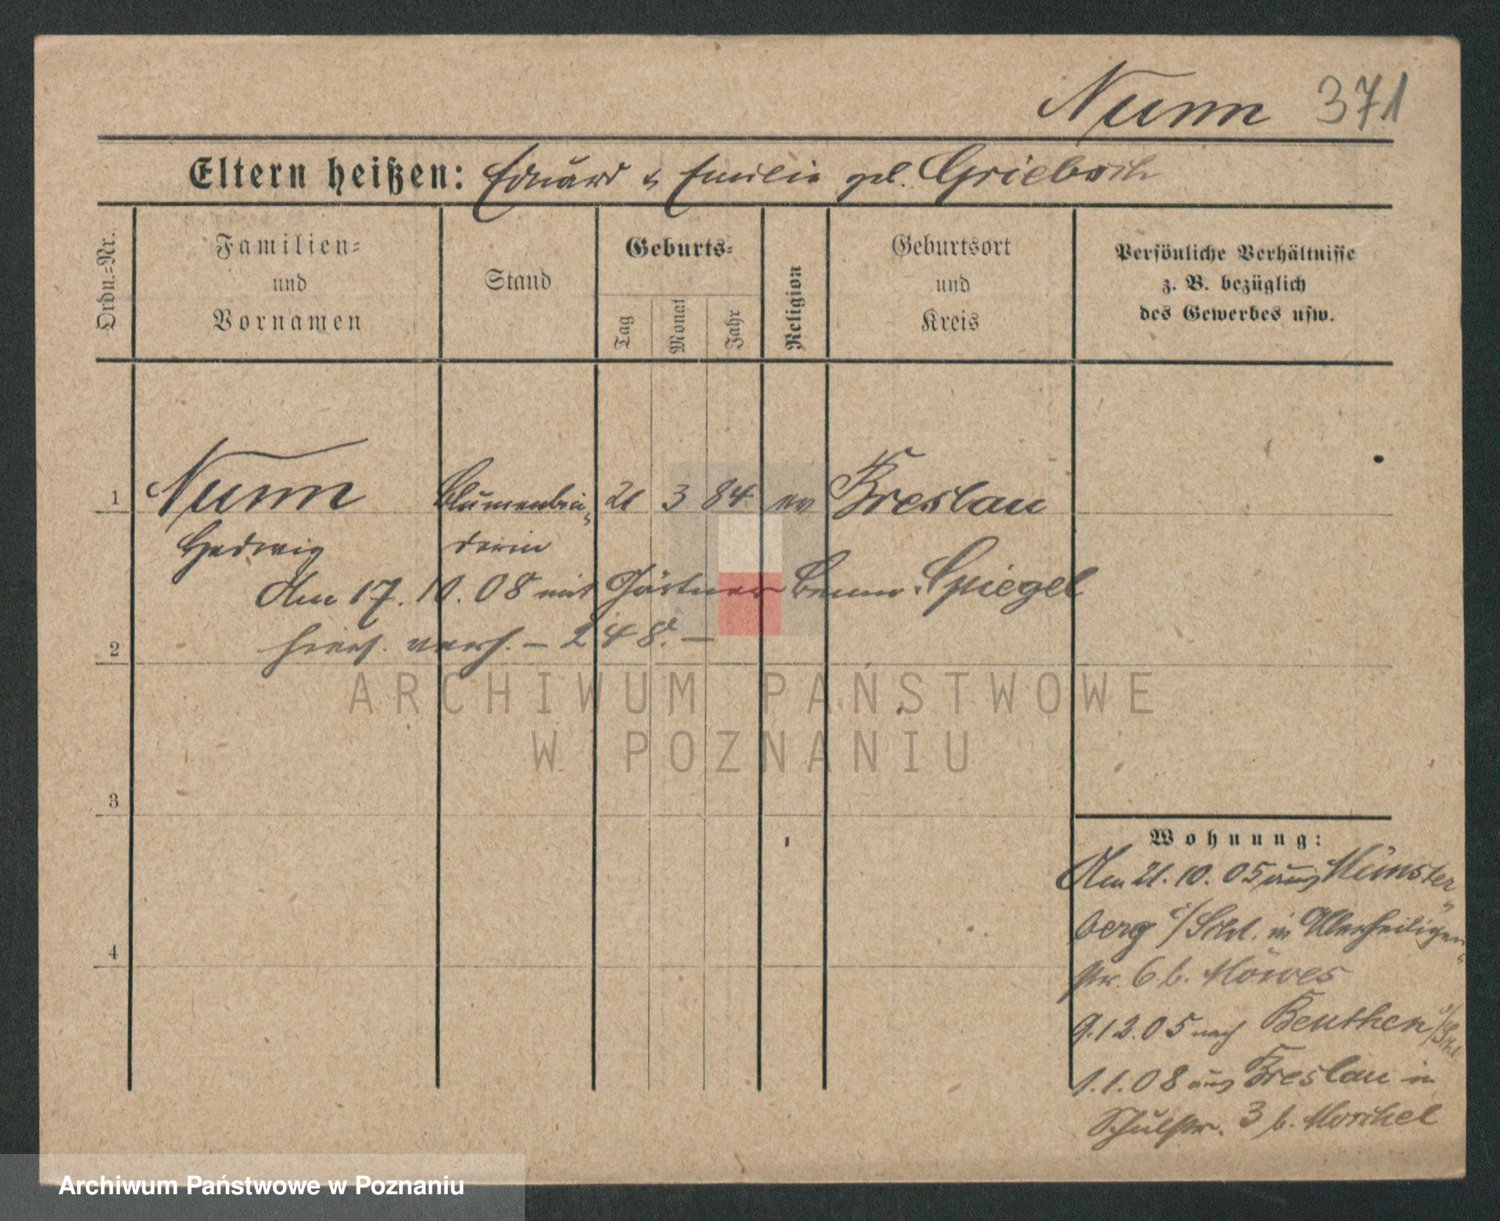 Nunn 371
Eltern heißen: Eduard & Emilie geb. Griebsch
Ordn.-Nr.
Familien-
und
Vornamen
Stand
Geburts-
Tag
Monat
Jahr
Religion
Geburtsort
und
Kreis
Persönliche Verhältnisse
z. B. bezüglich
des Gewerbes usw.
1 Nunn Blumenbin- 21 3 84. ev Breslau
Hedwig derin
Am 17. 10. 08 mit Gärtner Benno Spiegel
hiers. verh. – 248. –
2
3
4
Wohnung:
Am 21. 10. 05 aus Münster-
berg i/Schl. in Allerheiligen-
str. 6 b. Möwes
9.12.05 nach Beuthen
1.1.08 aus Breslau in
Schulstr. 3 b. Morchel
ARCHIWUM PAŃSTWOWE
W POZNANIU
Archiwum Państwowe w Poznaniu